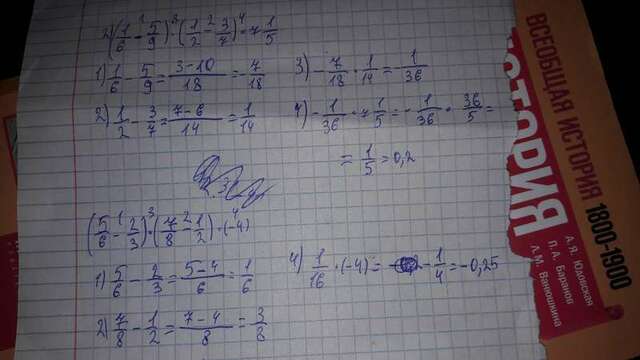 2) (1/6 - 5/9) · (1/2 - 3/7) · 7 1/5
1 3 2 4
1) 1/6 - 5/9 = (3-10)/18 = -7/18
3) -7/18 · 1/14 = -1/36
2) 1/2 - 3/7 = (7-6)/14 = 1/14
4) -1/36 · 7 1/5 = -1/36 · 36/5 =
= 1/5 = 0,2
(5/6 - 2/3) · (7/8 - 1/2) · (-4)
1 3 2 4
1) 5/6 - 2/3 = (5-4)/6 = 1/6
4) 1/16 · (-4) = - 1/4 = -0,25
2) 7/8 - 1/2 = (7-4)/8 = 3/8
ВСЕОБЩАЯ ИСТОРИЯ 1800-1900
ИСТОРИЯ
А.Я. Юдовская
П.А. Баранов
Л.М. Ванюшкина